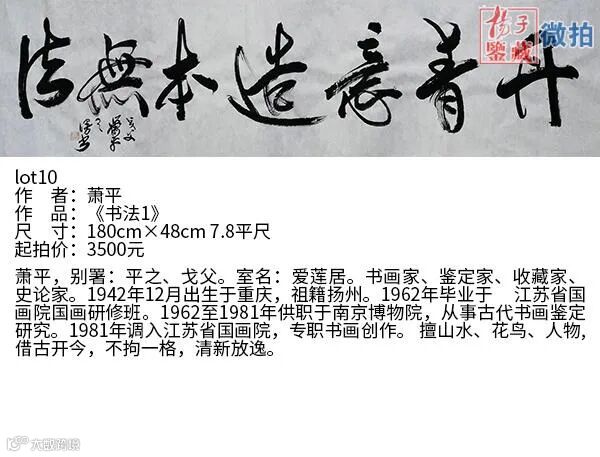 丹青意造本無法
扬子
鑒藏
微拍
lot10
作 者：萧平
作 品：《书法1》
尺 寸：180cm×48cm 7.8平尺
起拍价：3500元
萧平，别署：平之、戈父。室名：爱莲居。书画家、鉴定家、收藏家、
史论家。1942年12月出生于重庆，祖籍扬州。1962年毕业于 江苏省国
画院国画研修班。1962至1981年供职于南京博物院，从事古代书画鉴定
研究。1981年调入江苏省国画院，专职书画创作。 擅山水、花鸟、人物,
借古开今，不拘一格，清新放逸。